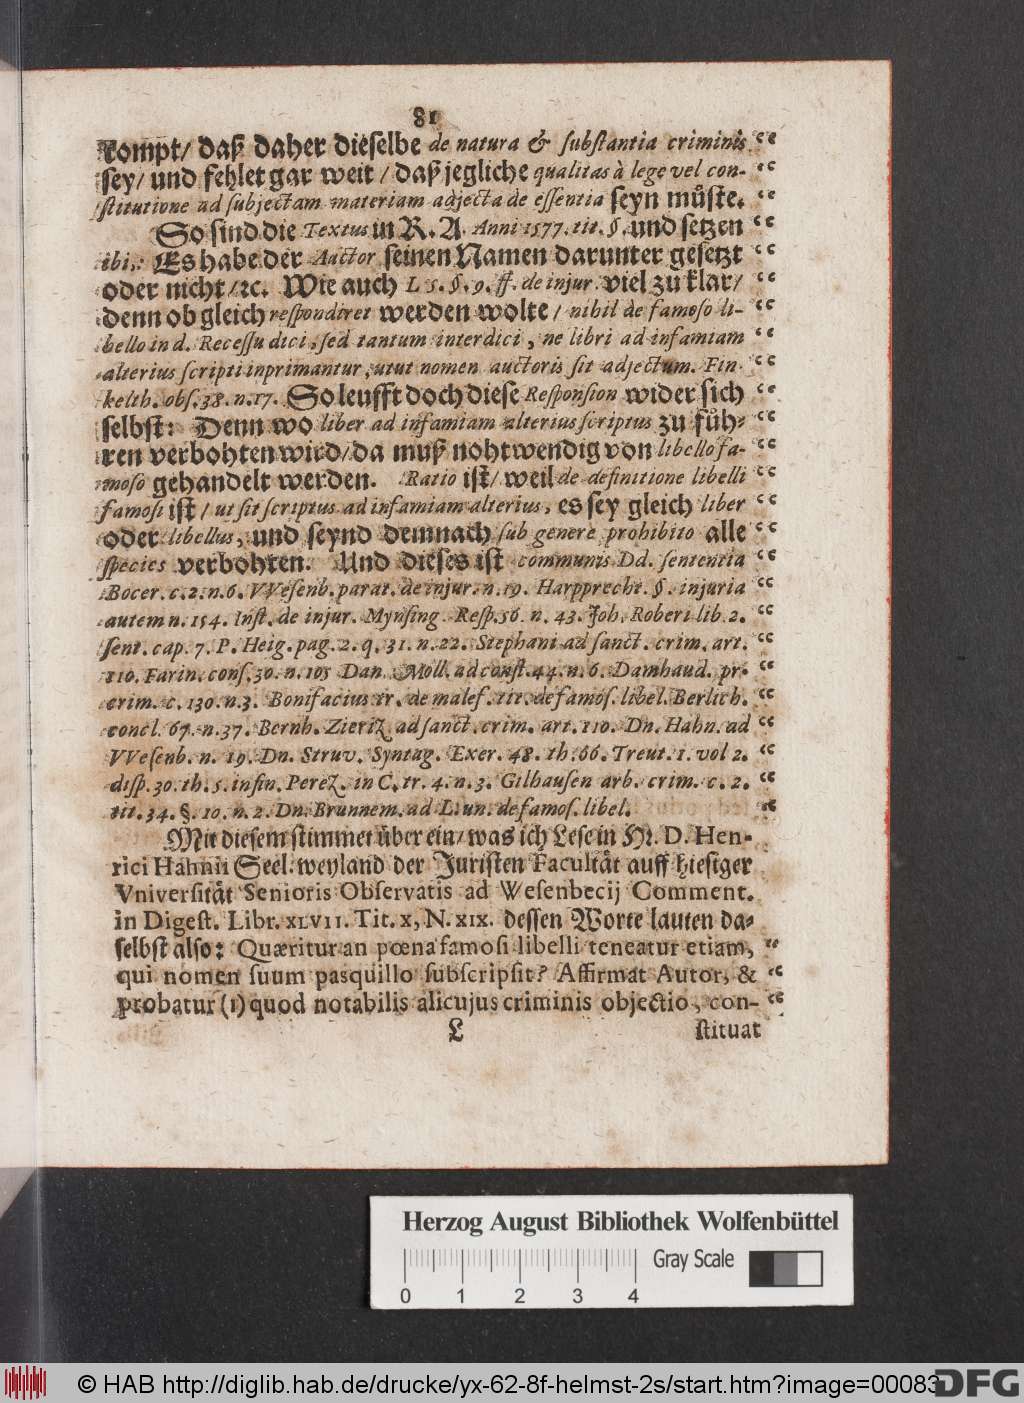 81
kompt/ daß daher dieselbe de natura & substantia criminis “
sey/ und fehlet gar weit / daß jegliche qualitas à lege vel con- “
stitutione ad subjectam materiam adjecta de essentia seyn müste. “
So sind die Textus in R. A. Anni 1577. tit. §. und setzen “
ibi,: Es habe der Aactor seinen Namen darunter gesetzt “
oder nicht / ꝛc. Wie auch L 5. §. 9. ff. de injur. viel zu klar/ “
denn ob gleich respondiret werden wolte / nihil de famoso li- “
bello in d. Recessu dici, sed tantum interdici, ne libri ad infamiam “
alterius scripti inprimantur, utut nomen auctoris sit adjectum. Fin- “
kelth. obs. 38. n. 17. So leufft doch diese Responsion wider sich “
selbst: Denn wo liber ad infamiam alterius scriptus zu füh- “
ren verbohten wird/ da muß nohtwendig von libello fa- “
moso gehandelt werden. Ratio ist/ weil de definitione libelli “
famosi ist / ut sit scriptus ad infamiam alterius, es sey gleich liber “
oder libellus, und seynd demnach sub genere prohibito alle “
species verbohten. Und dieses ist communis Dd. sententia “
Bocer. c. 2. n. 6. VVesenb. parat. de injur. n. 19. Harpprecht. §. injuria “
autem n. 154. Inst. de injur. Mynsing. Resp. 56. n. 43. Joh. Roberi lib. 2. “
sent. cap. 7. P. Heig. pag. 2. q. 31. n. 22. Stephani ad sanct. crim. art. “
110. Farin. cons. 30. n. 105 Dan. Moll. ad const. 44. n. 6. Damhaud. pr- “
crim. c. 130. n. 3. Bonifacius tr. de malef. tit. de famos. libel. Berlich. “
concl. 67. n. 37. Bernh. Zieritz ad sanct. crim. art. 110. Dn. Hahn. ad “
VVesenb. n. 19. Dn. Struv. Syntag. Exer. 48. th. 66. Treut. 1. vol 2. “
disp. 30. th. 5. infin. Perez. in C. tr. 4. n. 3. Gilhausen arb. crim. c. 2. “
tit. 34. §. 10. n. 2. Dn. Brunnem. ad L. un. de famos. libel. “
Mit diesem stimmet über ein/ was ich Lese in H. D. Hen-
rici Hahnii Seel. weyland der Juristen Facultät auff hiesiger
Vniversität Senioris Observatis ad Wesenbecij Comment.
in Digest. Libr. XLVII. Tit. X, N. XIX. dessen Worte lauten da-
selbst also: Quæritur an pœna famosi libelli teneatur etiam, “
qui nomen suum pasquillo subscripsit? Affirmat Autor, & “
probatur (1) quod notabilis alicujus criminis objectio, con- “
L stituat
Herzog August Bibliothek Wolfenbüttel
Gray Scale
0 1 2 3 4
© HAB http://diglib.hab.de/drucke/yx-62-8f-helmst-2s/start.htm?image=00083
DFG